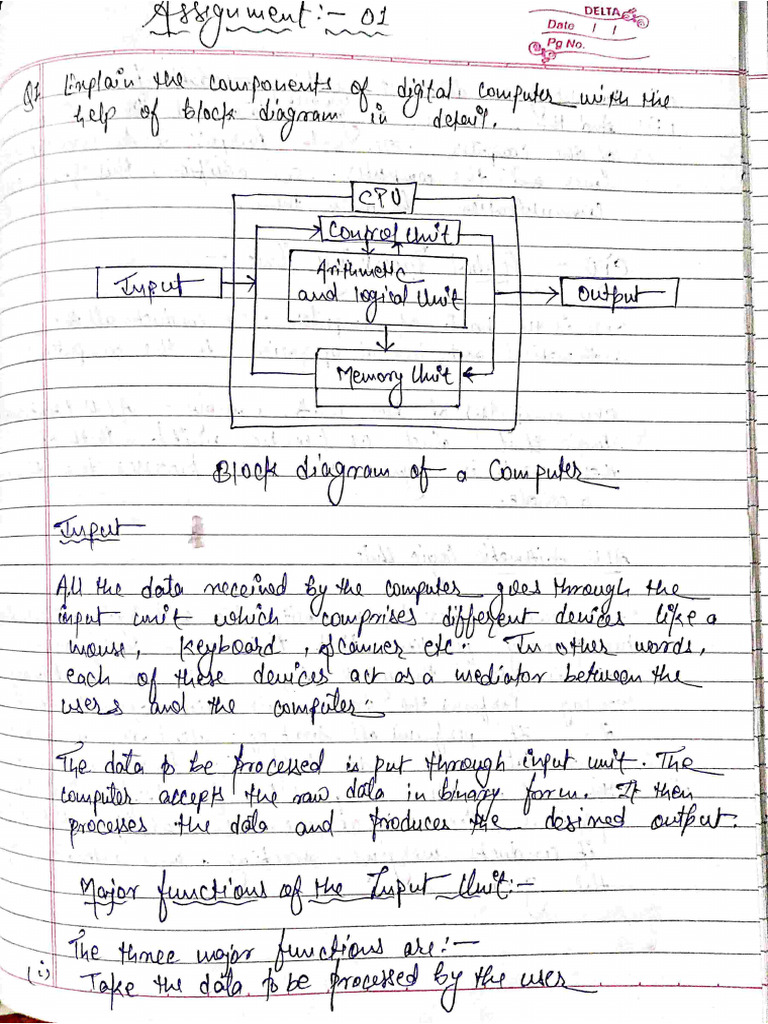 Assignment:- 01
DELTA
Date / /
Pg No.
Q1 Explain the components of digital computer with the
help of Block diagram in detail.
CPU
Control Unit
Arithmetic
and logical Unit
Input
Output
Memory Unit
Block diagram of a Computer
Input
All the data received by the computer goes through the
input unit which comprises different devices like a
mouse, keyboard, scanner etc. In other words,
each of these devices act as a mediator between the
users and the computer.
The data to be processed is put through input unit. The
computer accepts the raw data in binary form. It then
processes the data and produces the desired output.
Major functions of the Input Unit:-
The three major functions are:-
(i) Take the data to be processed by the user